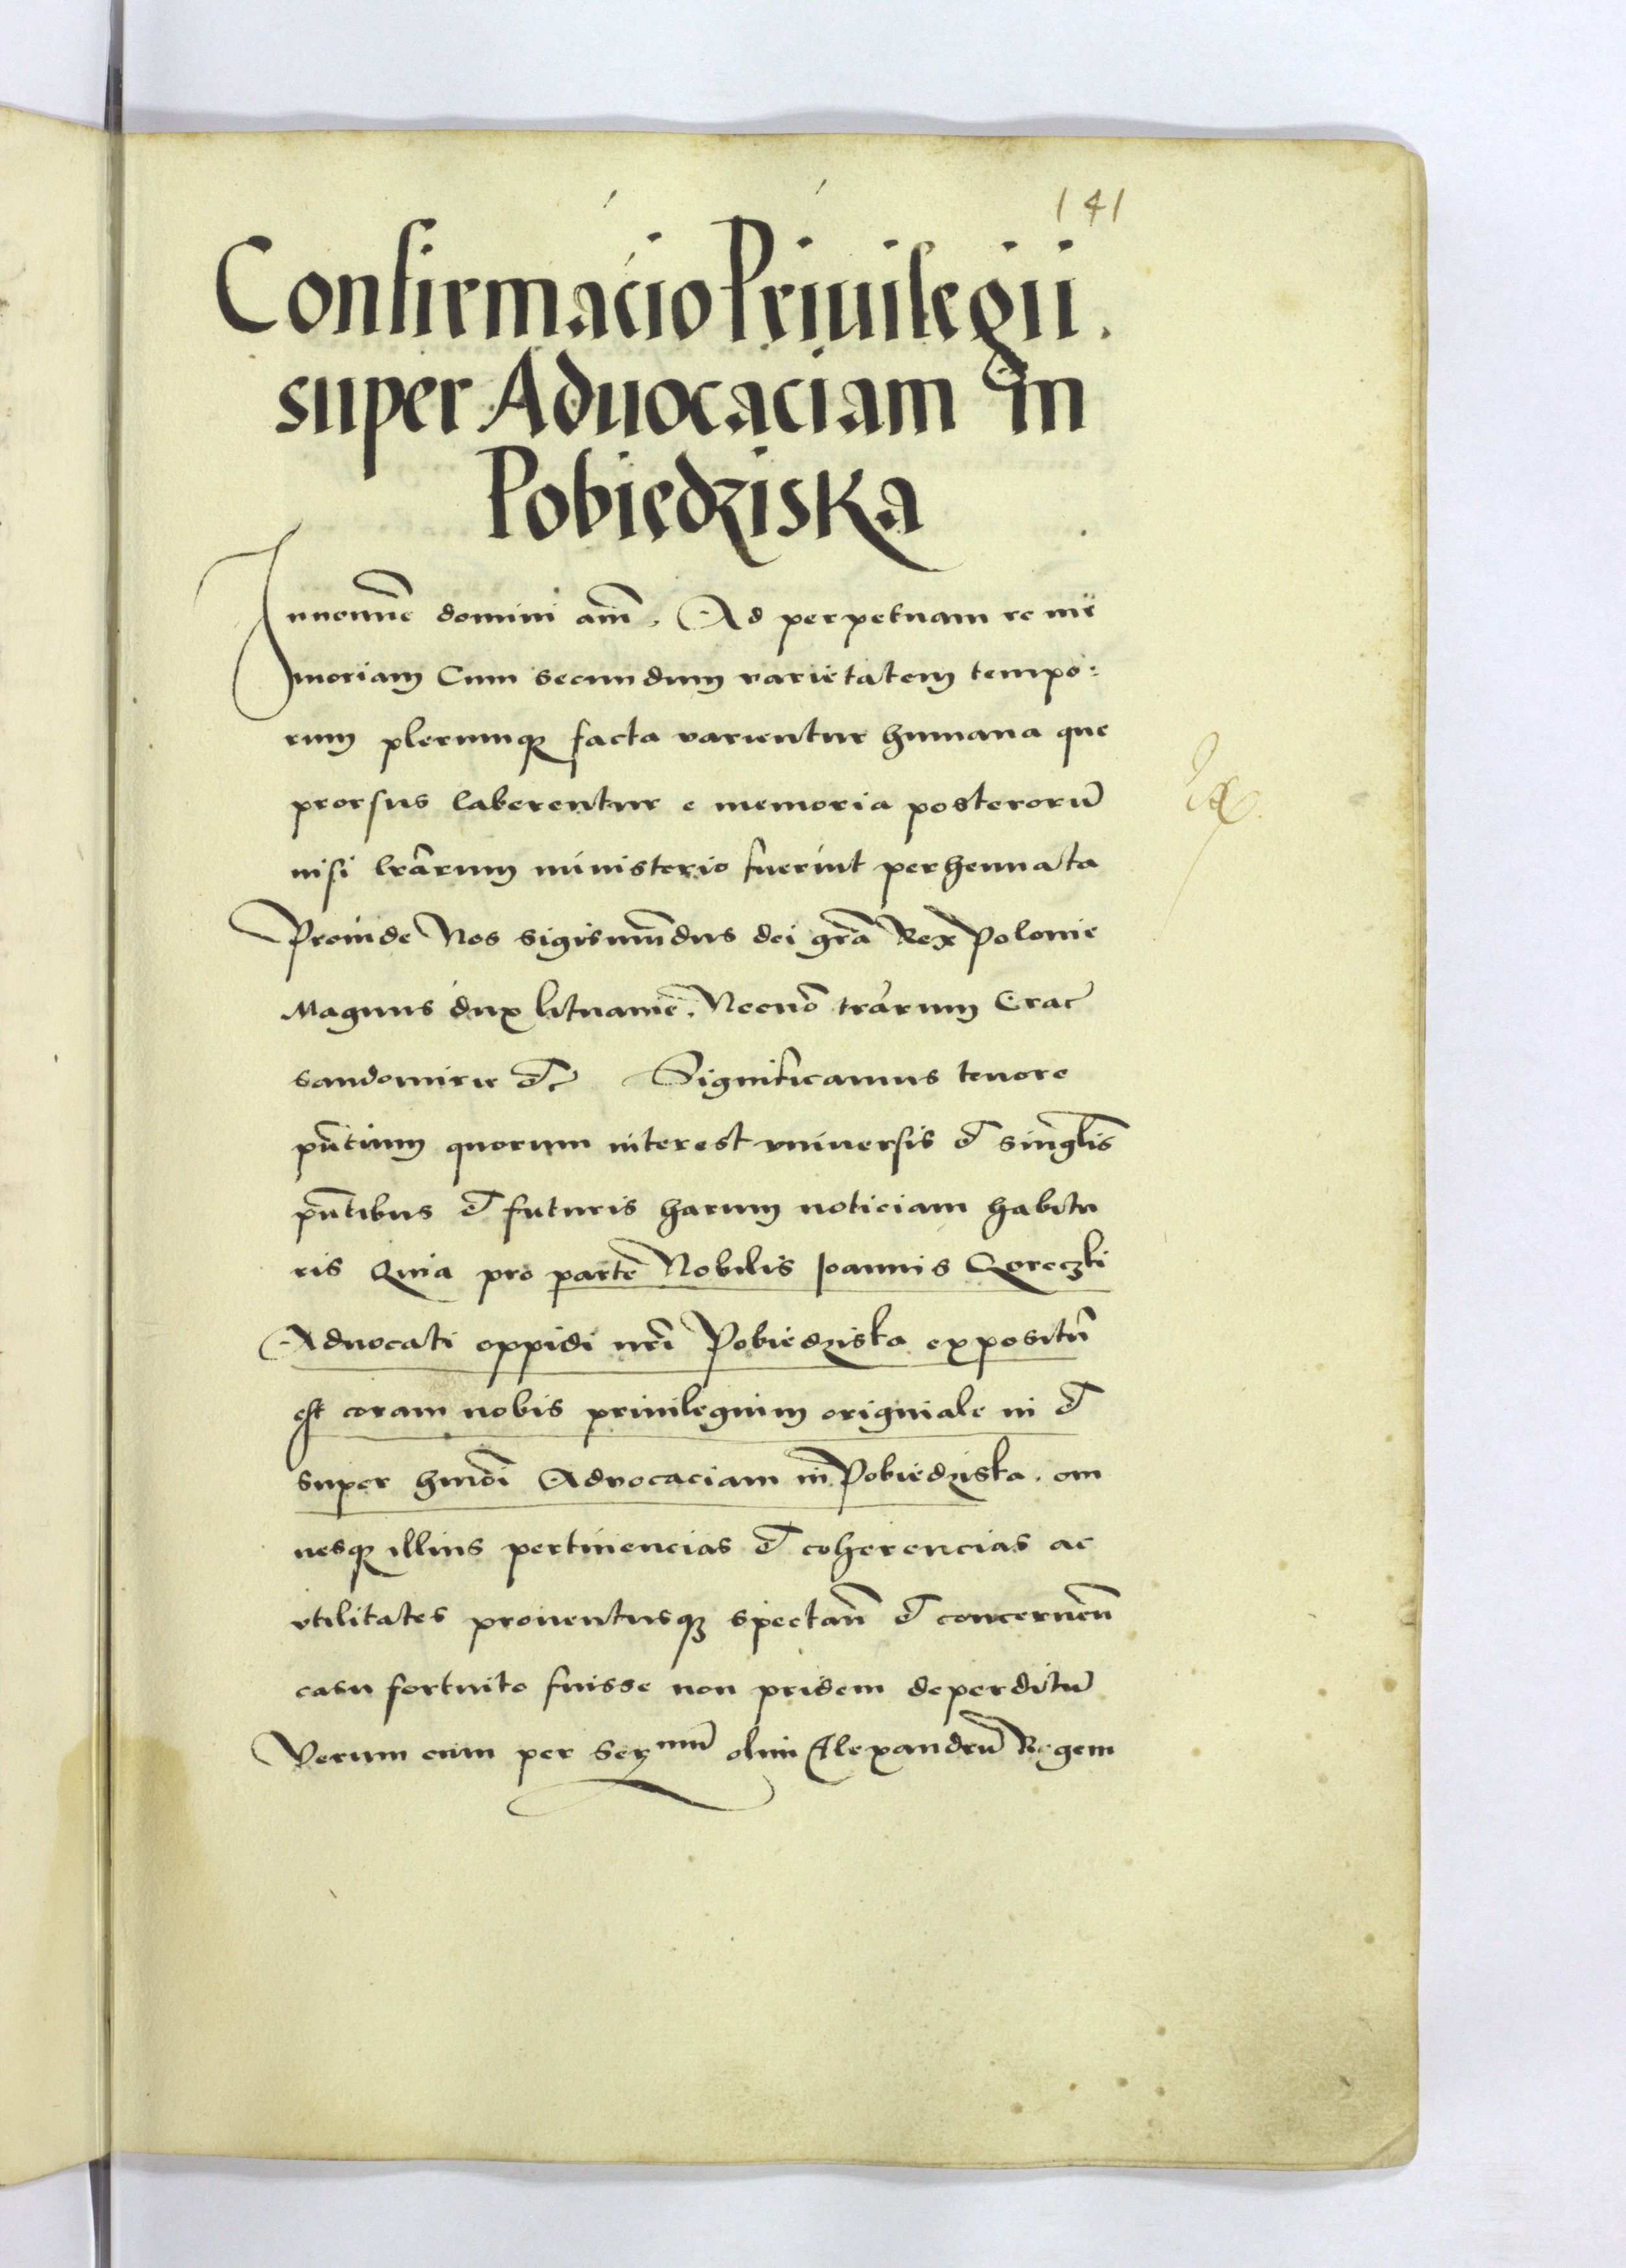 141
Confirmacio Priuilegii.
super Aduocaciam in
Pobiedziska
In noīe domini amē. Ad perpetuam re me
moriam Cum secundum varietatem tempo:
rum plerumq3 facta varientur humana que
prorsus laberentur e memoria posterorū
nisi lrārum ministerio fuerint perhennata
Proinde Nos sigismūdus dei grā Rex Polonie
Magnus dux lituanie. Necnō trārum Crac̄
sandomirie etc̄ Significamus tenore
pn̄tium quorum interest vniuersis et singlīs
pn̄tibus et futuris harum noticiam habitu
ris Quia pro parte Nobilis Joannis Goreczki
Aduocati oppidi nr̄i Pobiedziska expositū
est coram nobis priuilegium originale in et
super hmōi Aduocaciam in Pobiedziska. om
nesq3 illius pertinencias et coherencias ac
vtilitates prouentusq3 spectan̄ et concernen̄
casu fortuito fuisse non pridem deperditū
Verum cum per Ser<sup>mū</sup> olim Alexandrū Regem